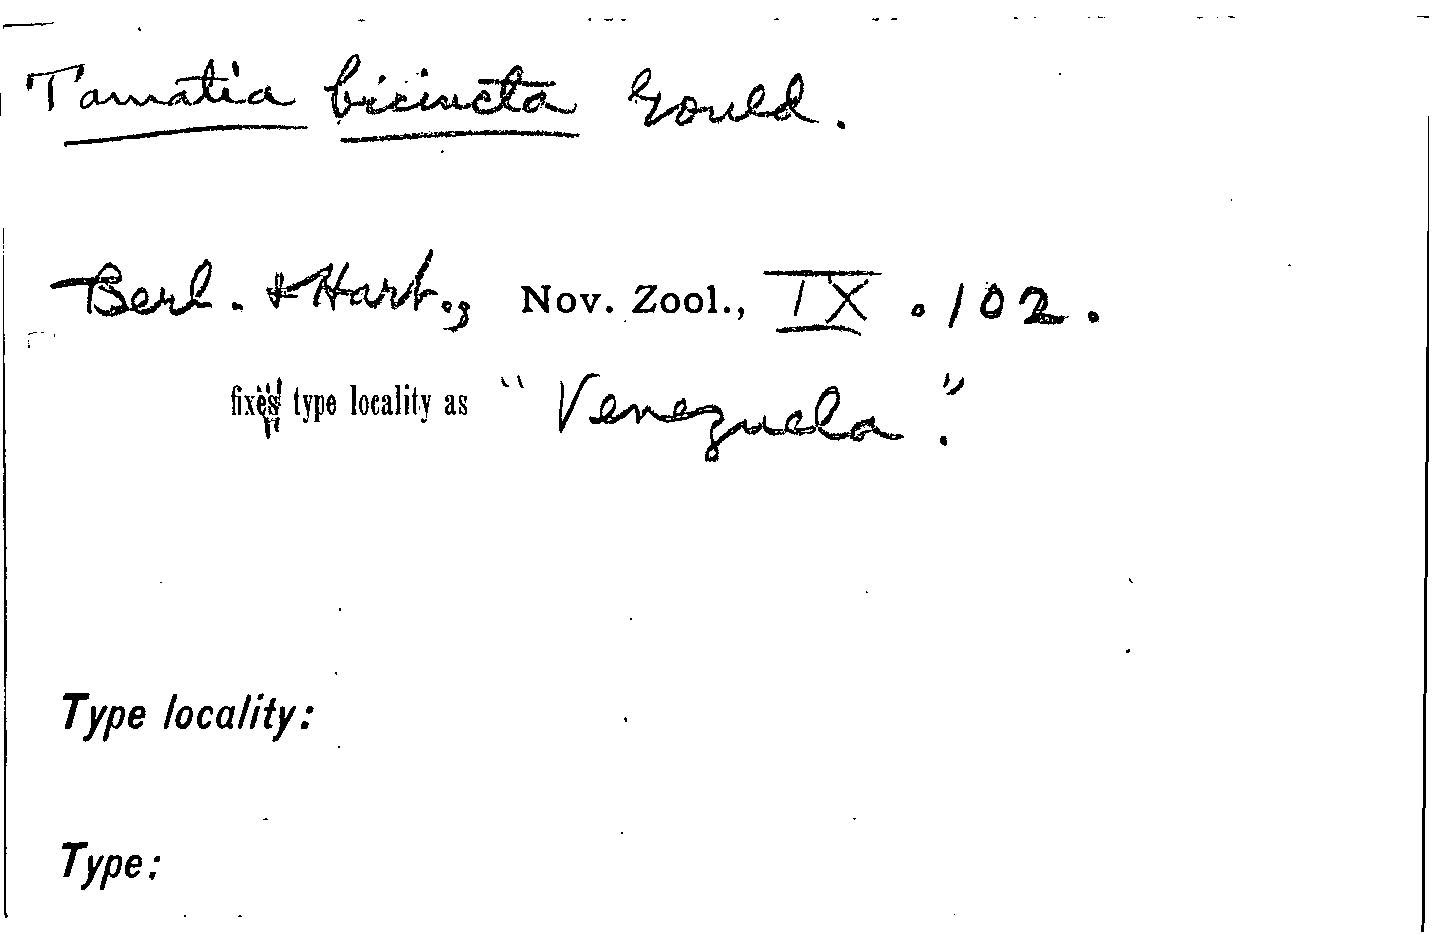 Tamatia bicincta Gould.
Berl. & Hart., Nov. Zool., IX. 102.
fixes type locality as "Venezuela."
Type locality:
Type: